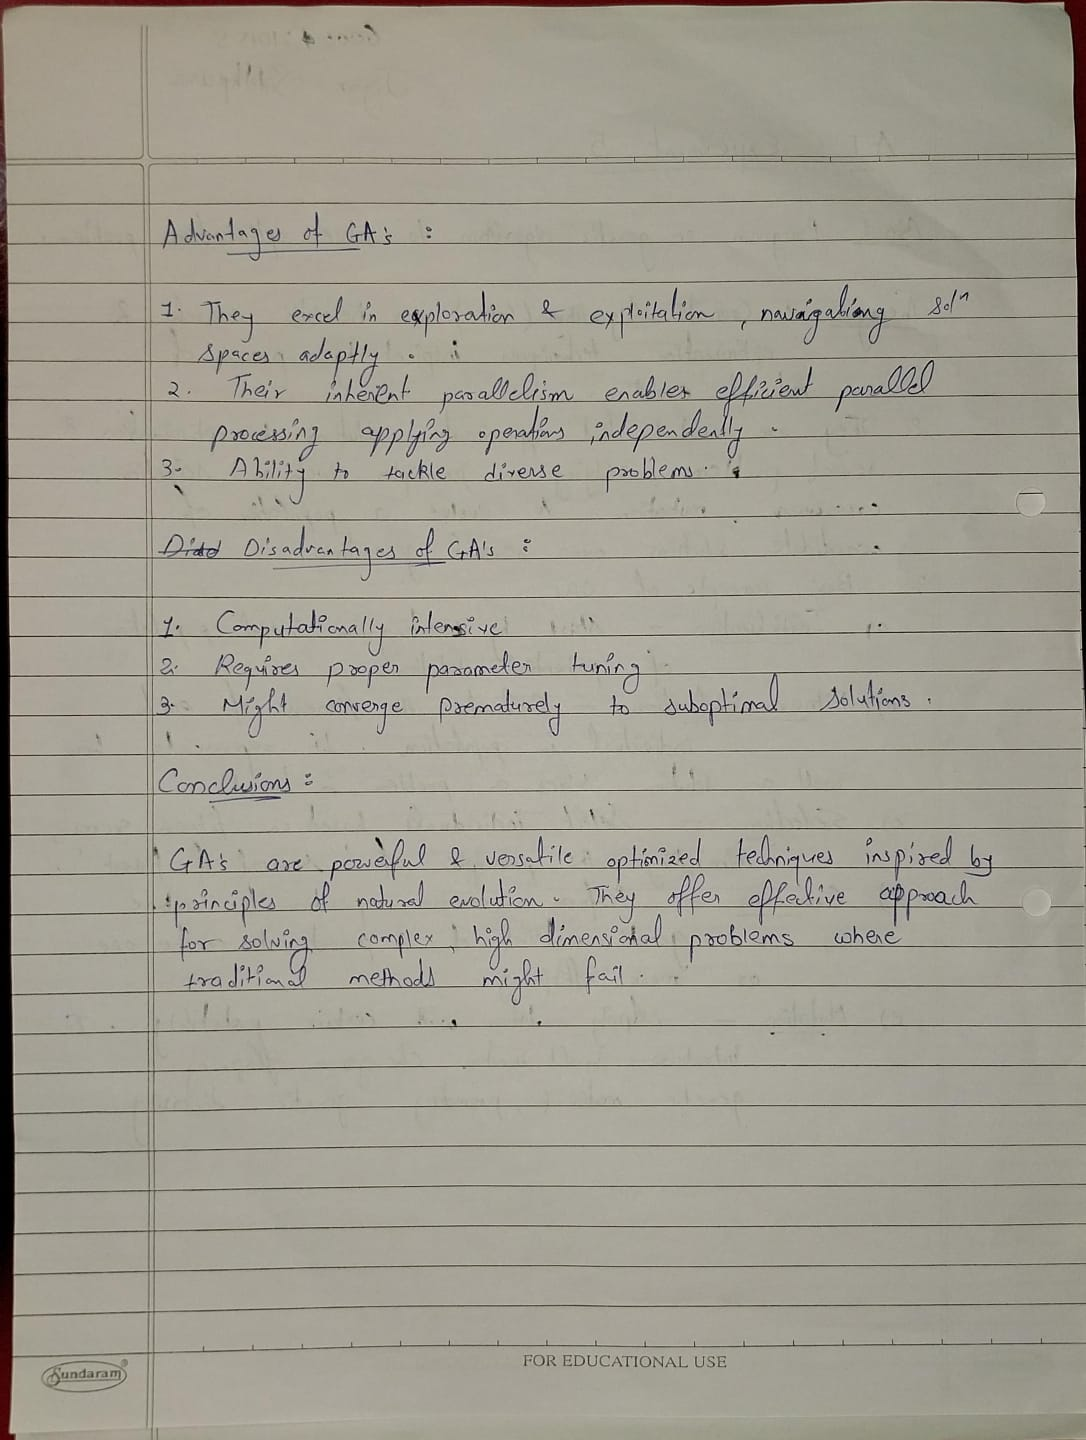 Advantages of GA's :
1. They excel in exploration & exploitation, navigating solⁿ
spaces adaptly.
2. Their inherent parallelism enables efficient parallel
processing applying operations independently.
3. Ability to tackle diverse problems.
Disadvantages of GA's :
1. Computationally intensive
2. Requires proper parameter tuning
3. Might converge prematurely to suboptimal solutions.
Conclusions :
GA's are powerful & versatile optimized techniques inspired by
principles of natural evolution. They offer effective approach
for solving complex, high dimensional problems where
traditional methods might fail.
FOR EDUCATIONAL USE
Sundaram®